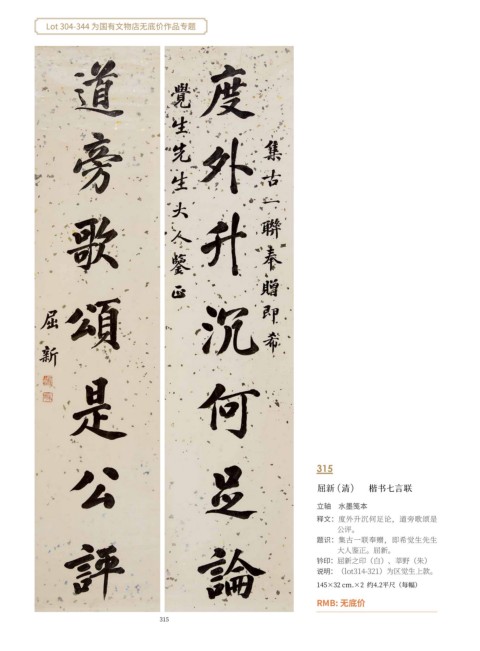 Lot 304-344 为国有文物店无底价作品专题
集古一聯奉贈即希
度外升沉何足論
覺生先生大人鑒正
道旁歌頌是公評
屈新
315
屈新（清） 楷书七言联
立轴 水墨笺本
释文：度外升沉何足论，道旁歌颂是
公评。
题识：集古一联奉赠，即希觉生先生
大人鉴正。屈新。
钤印：屈新之印（白）、莘野（朱）
说明：（lot314-321）为区觉生上款。
145×32 cm.×2 约4.2平尺（每幅）
RMB: 无底价
315